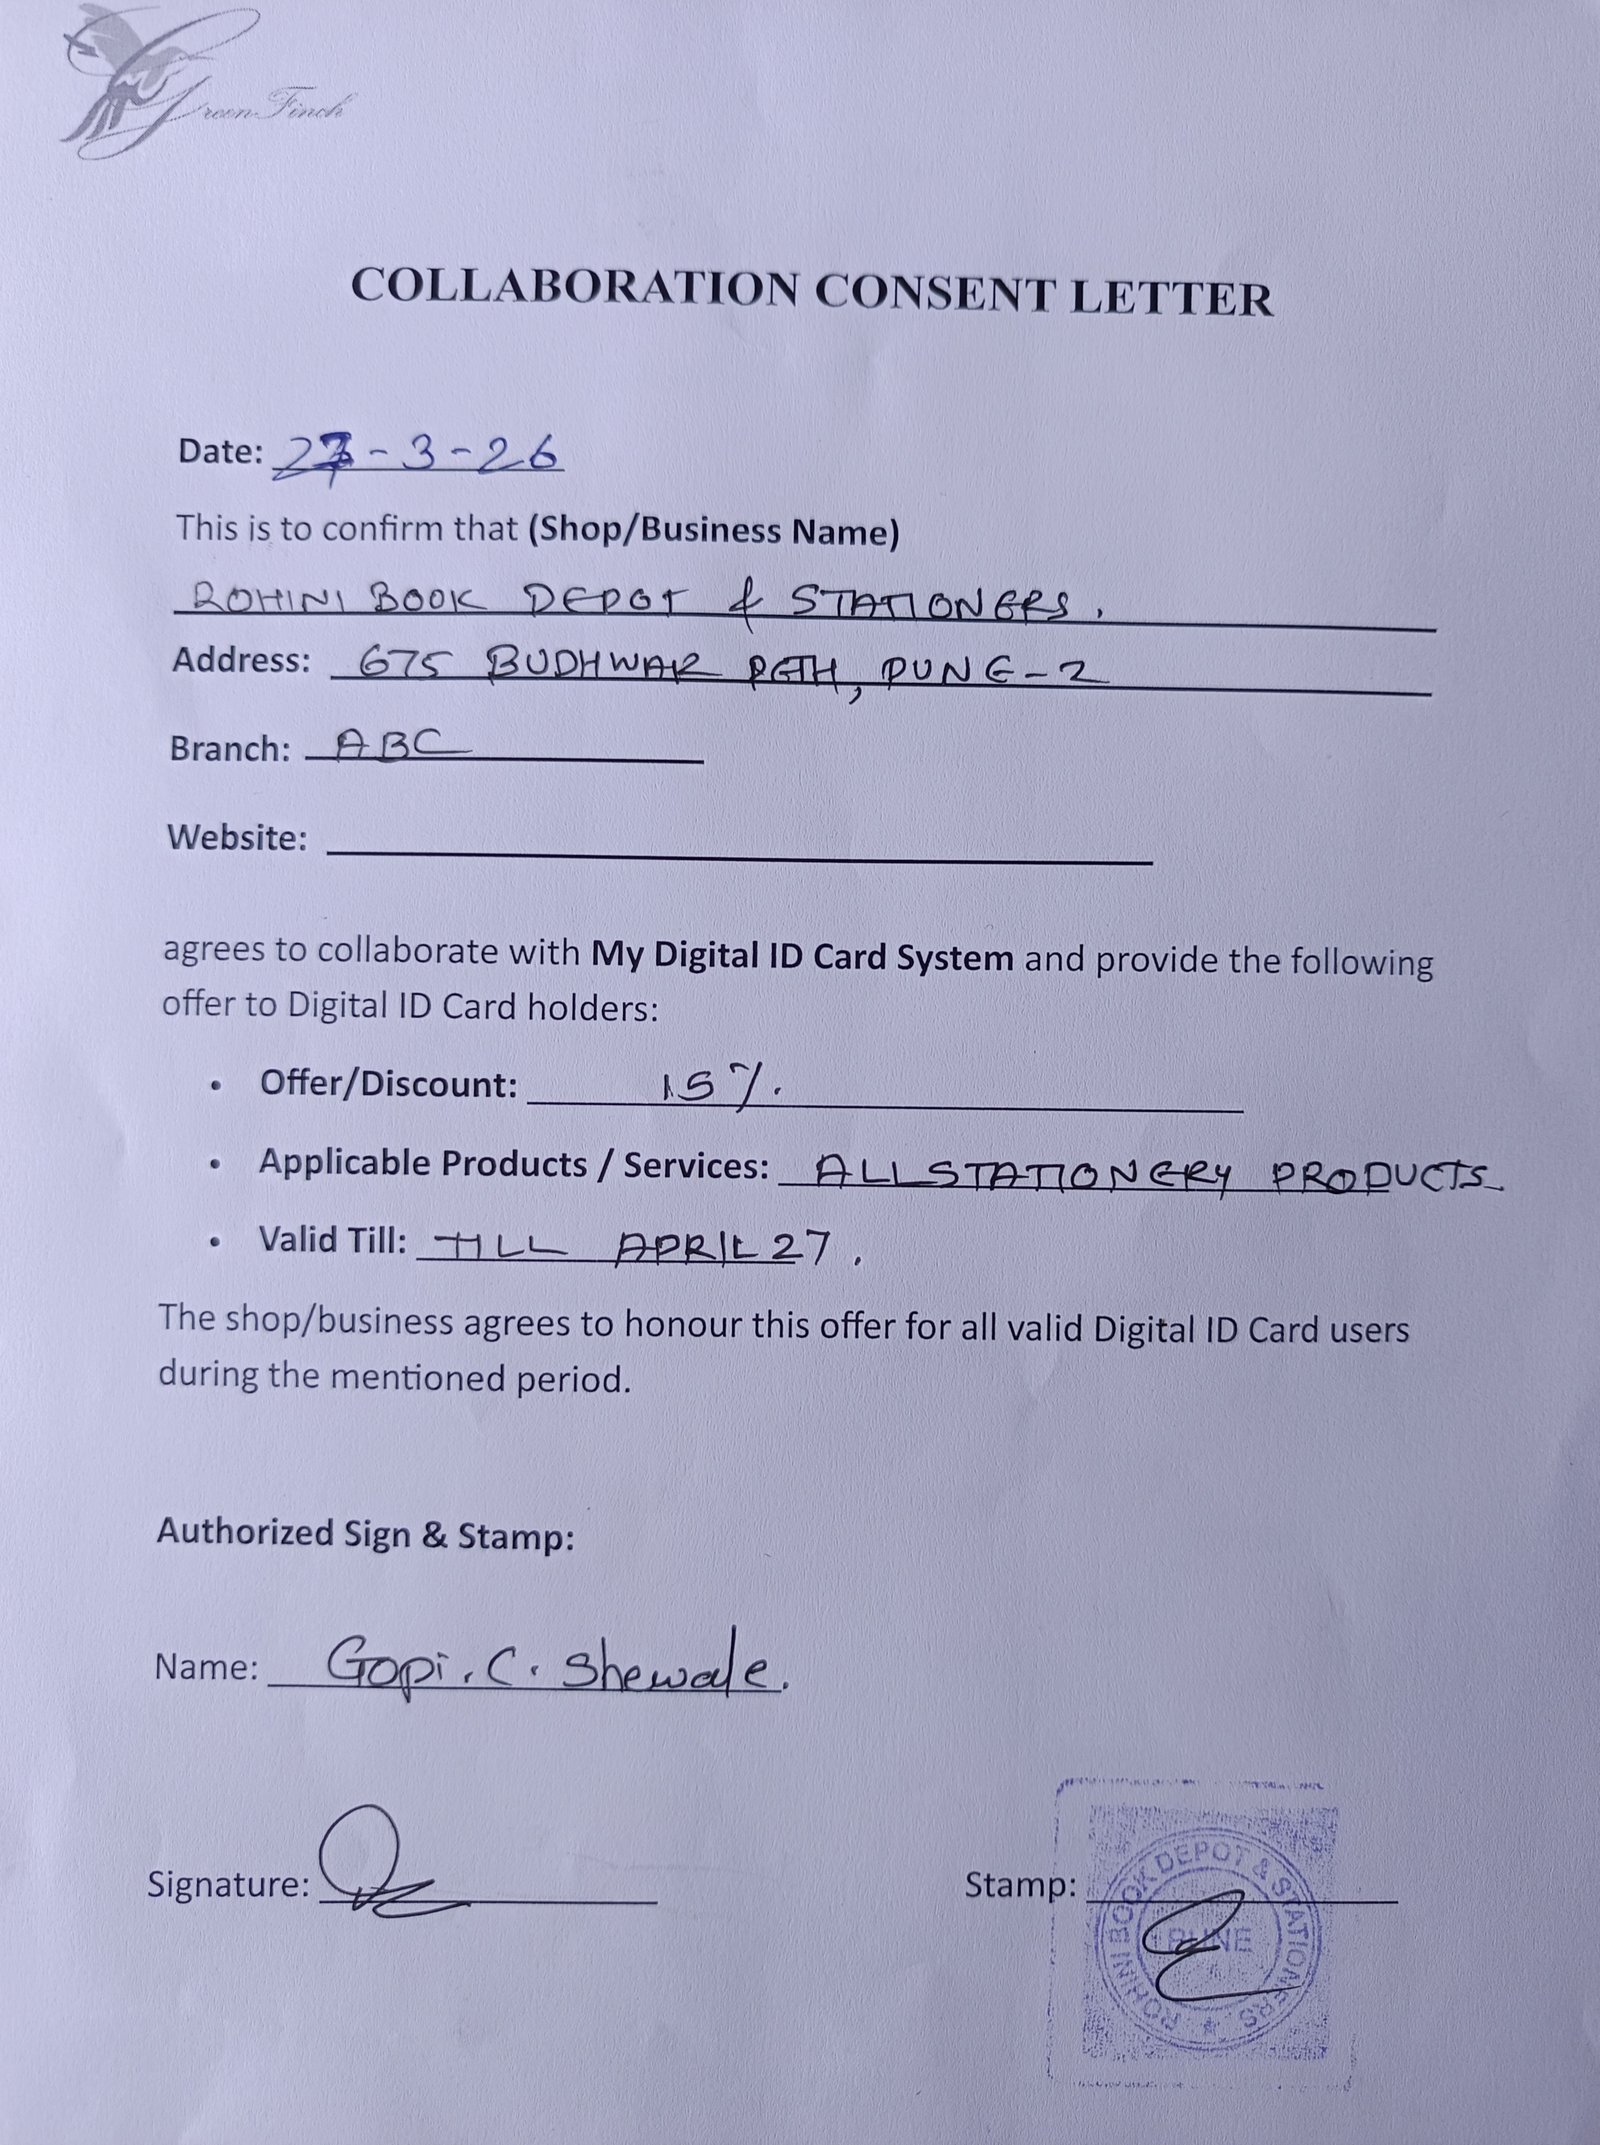 Green Finch
COLLABORATION CONSENT LETTER
Date: 27-3-26
This is to confirm that (Shop/Business Name)
ROHINI BOOK DEPOT & STATIONERS.
Address: 675 BUDHWAR PETH, PUNE-2
Branch: ABC
Website:
agrees to collaborate with My Digital ID Card System and provide the following
offer to Digital ID Card holders:
• Offer/Discount: 15%.
• Applicable Products / Services: ALL STATIONERY PRODUCTS
• Valid Till: TILL APRIL 27.
The shop/business agrees to honour this offer for all valid Digital ID Card users
during the mentioned period.
Authorized Sign & Stamp:
Name: Gopi. C. Shewale.
Signature:
Stamp:
ROHINI BOOK DEPOT & STATIONERS
PUNE